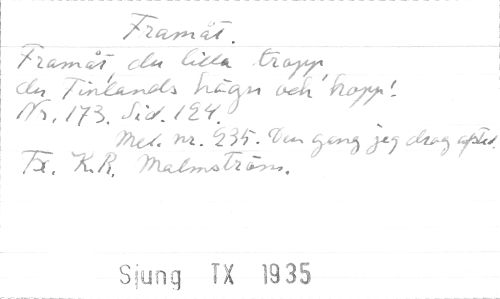 Framåt.
Framåt, du lilla tropp
du Finlands hägn och hopp!
Nr. 173. Sid. 124.
Mel. nr. 235. Den gang jeg drog afsted.
Tx. K.R. Malmström.
Sjung TX 1935